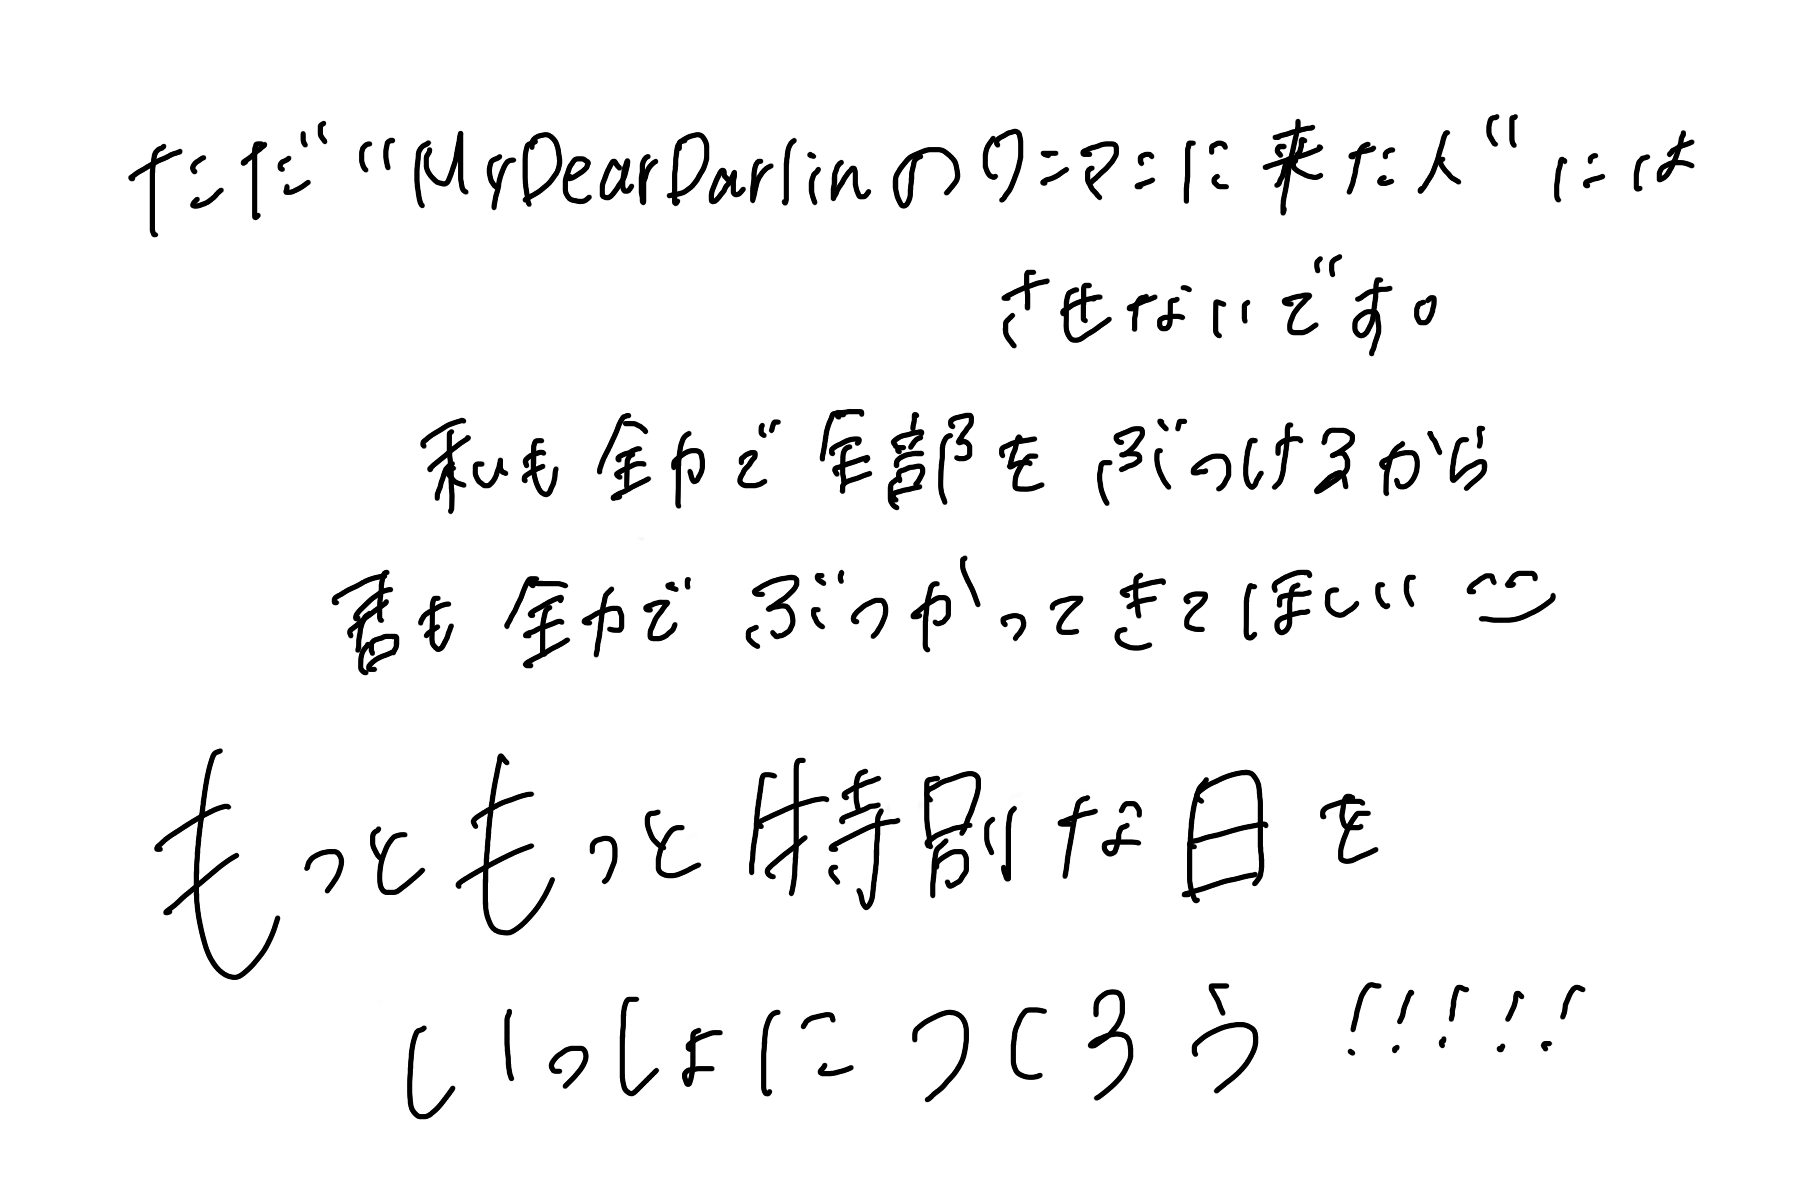 ただ“MyDearDarlinのワンマンに来た人”には
させないです。
私も全力で全部をぶつけるから
君も全力でぶつかってきてほしい
もっともっと特別な日を
いっしょにつくろう!!!!!